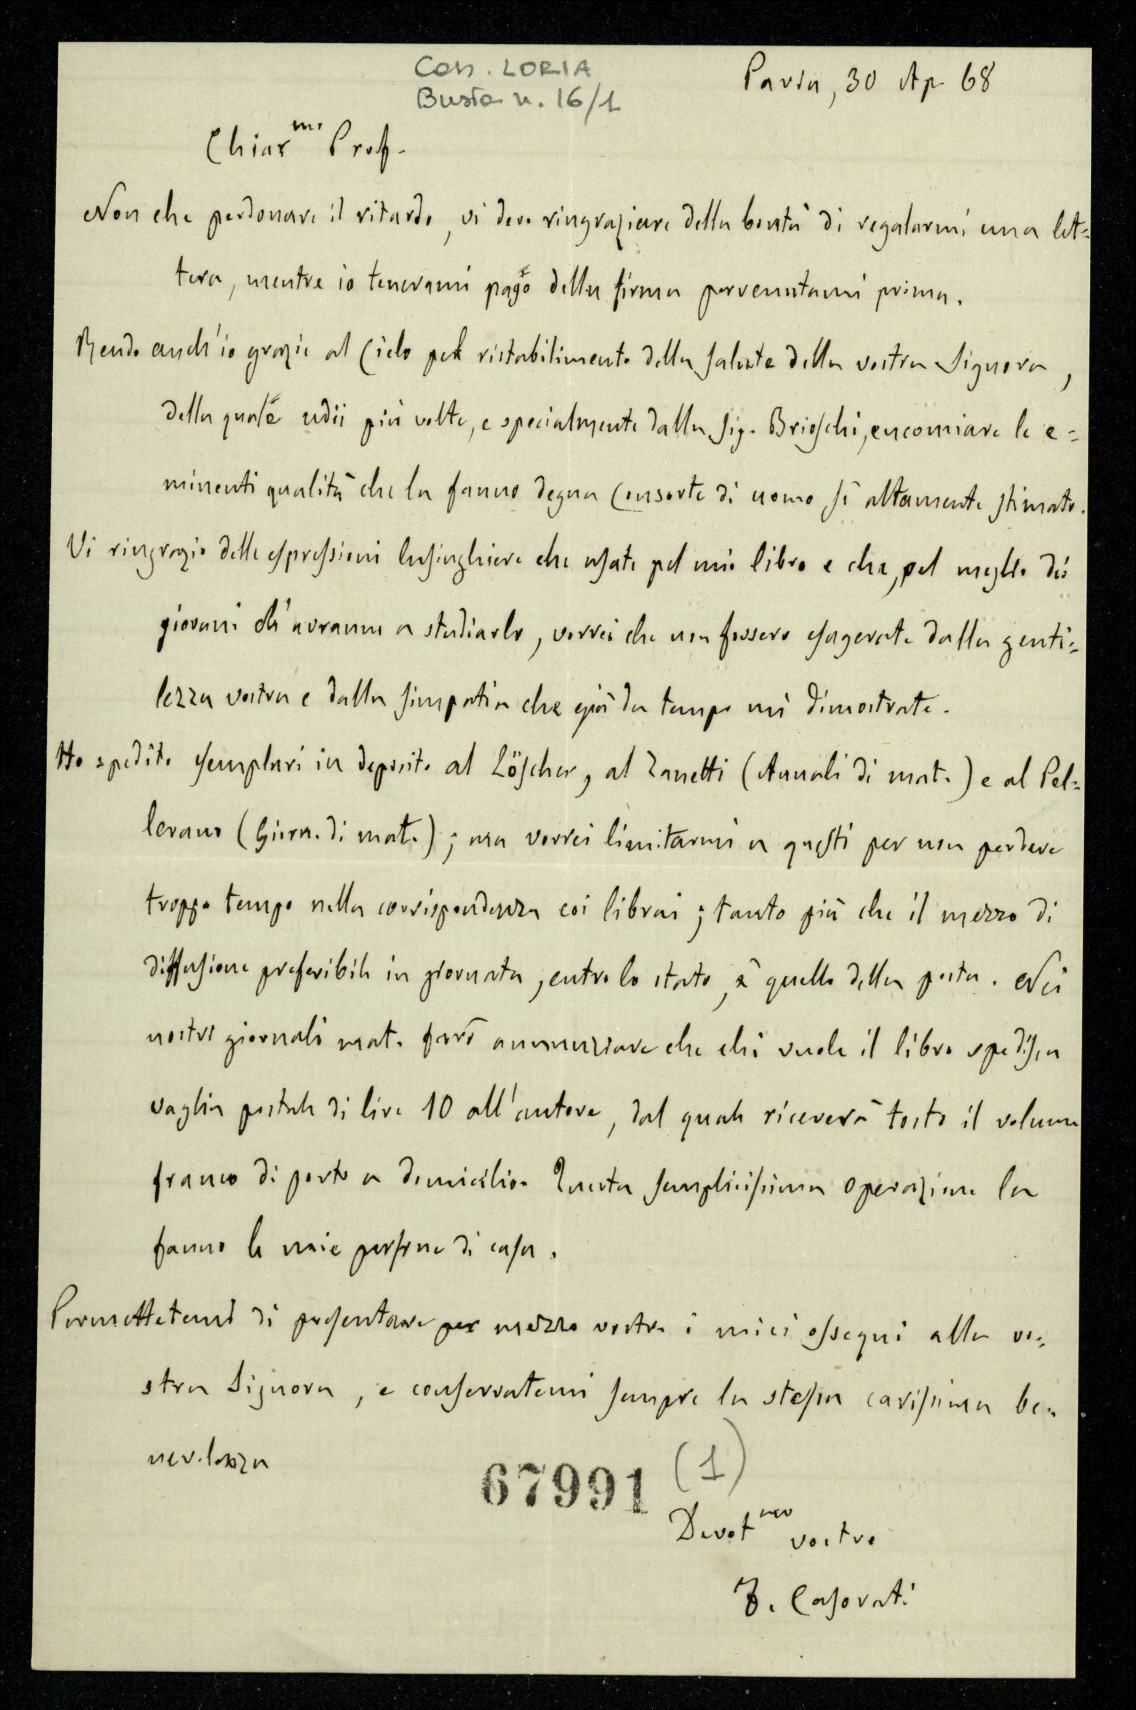 Cass. LORIA
Busta n. 16/1
Pavia, 30 Ap. 68
Chiar.mo Prof.
Non che perdonare il ritardo, vi devo ringraziare della bontà di regalarmi una let=
tera, mentre io tenevami pago della firma pervenutami prima.
Rendo anch'io grazie al Cielo pel ristabilimento della salute della vostra Signora,
della quale udii più volte, e specialmente dalla Sig. Brioschi, encomiare le e=
minenti qualità che la fanno degna Consorte di uomo sì altamente stimato.
Vi ringrazio delle espressioni lusinghiere che usate pel mio libro e che, pel meglio dei
giovani ch'avranno a studiarlo, vorrei che non fossero esagerate dalla genti=
lezza vostra e dalla simpatia che già da tempo mi dimostrate.
Ho spedito esemplari in deposito al Löscher, al Zanetti (Annali di mat.) e al Pel=
lerano (Giorn. di mat.); ma vorrei limitarmi a questi per non perdere
troppo tempo nella corrispondenza coi librai; tanto più che il mezzo di
diffusione preferibile in giornata, entro lo stato, è quello della posta. Nei
nostri giornali mat. farò annunziare che chi vuole il libro spedisca
vaglia postale di lire 10 all'autore, dal quale riceverà tosto il volume
franco di porto a domicilio. Questa semplicissima operazione la
fanno le mie persone di casa.
Permettetemi di presentare per mezzo vostro i miei ossequi alla vo=
stra Signora, e conservatemi sempre la stessa carissima be=
nevolenza
67991 (1)
Devot.mo vostro
F. Casorati